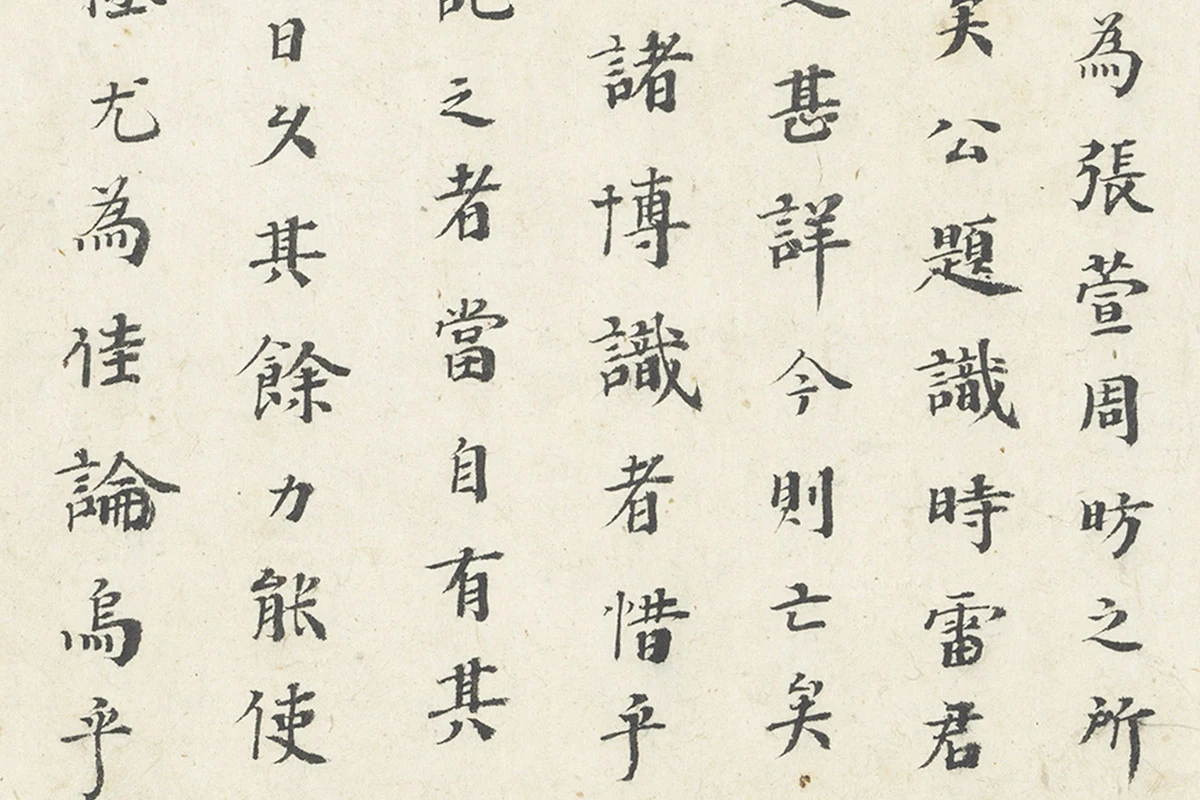 為張萱周昉之所
矣公題識時雷君
甚詳今則亡矣
諸博識者惜乎
之者當自有其
日久其餘力能使
尤為佳論烏乎